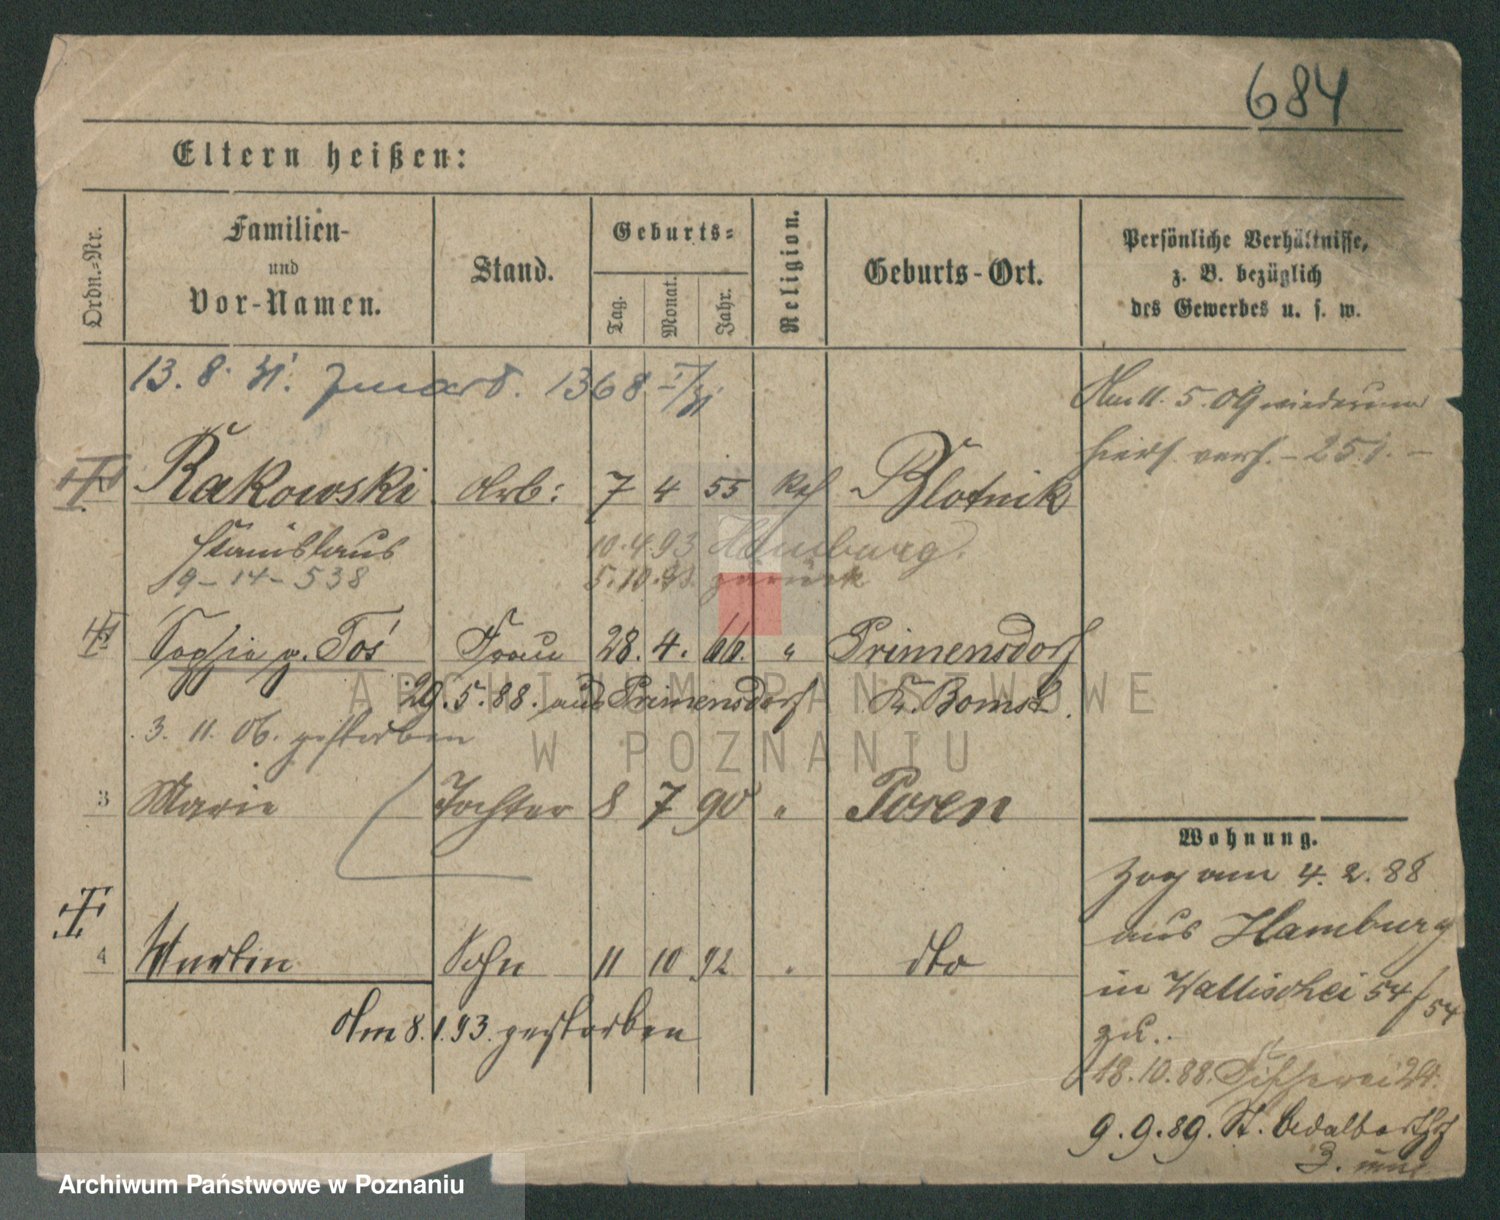 684
Eltern heißen:
Ordn.-Nr.
Familien-
und
Vor-Namen.
Stand.
Geburts-
Tag.
Monat.
Jahr.
Religion.
Geburts-Ort.
Persönliche Verhältnisse,
z. B. bezüglich
des Gewerbes u. s. w.
13. 8. 1368
Am 11. 5. 09 wiederum
hierh. verh. - 251. -
Rakowski Arb: 7 4 55 Kth Blotnik
Stanislaus 10.4.93 Hamburg.
9-14-538 5.10. zurück
Sophie g. Toś Frau 28. 4. 66. " Primensdorf
29.5.88. aus Primensdorf Kr. Bomst.
3. 11. 06. gestorben
3 Marie Tochter 8 7 90 " Posen
Wohnung.
Zog am 4. 2. 88
aus Hamburg
in Wallischei 54/54
zu..
4 Martin Sohn 11 10 92 " dto
Am 8.1.93. gestorben
18.10.88. Fischerei 24.
9.9.89. St. Adalbertstr
3.
ARCHIWUM PAŃSTWOWE
W POZNANIU
Archiwum Państwowe w Poznaniu